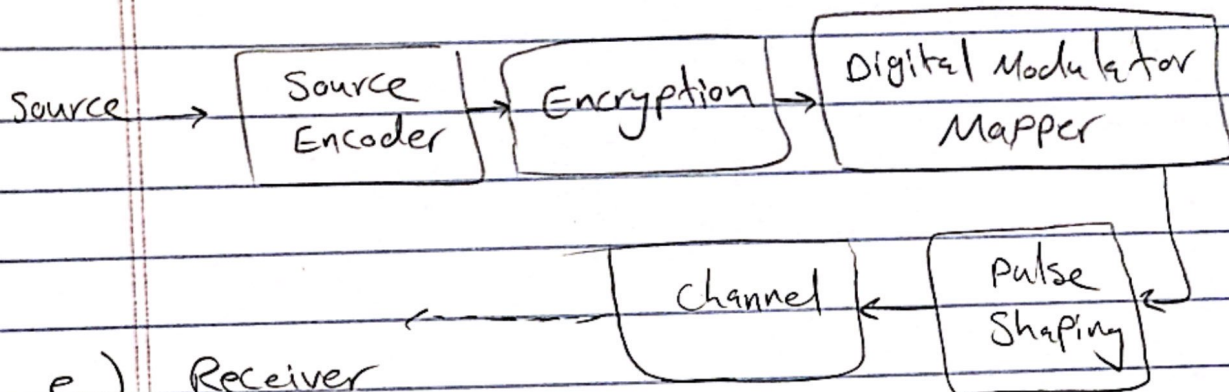 Source
Source
Encoder
Encryption
Digital Modulator
Mapper
Pulse
Shaping
Channel
e) Receiver